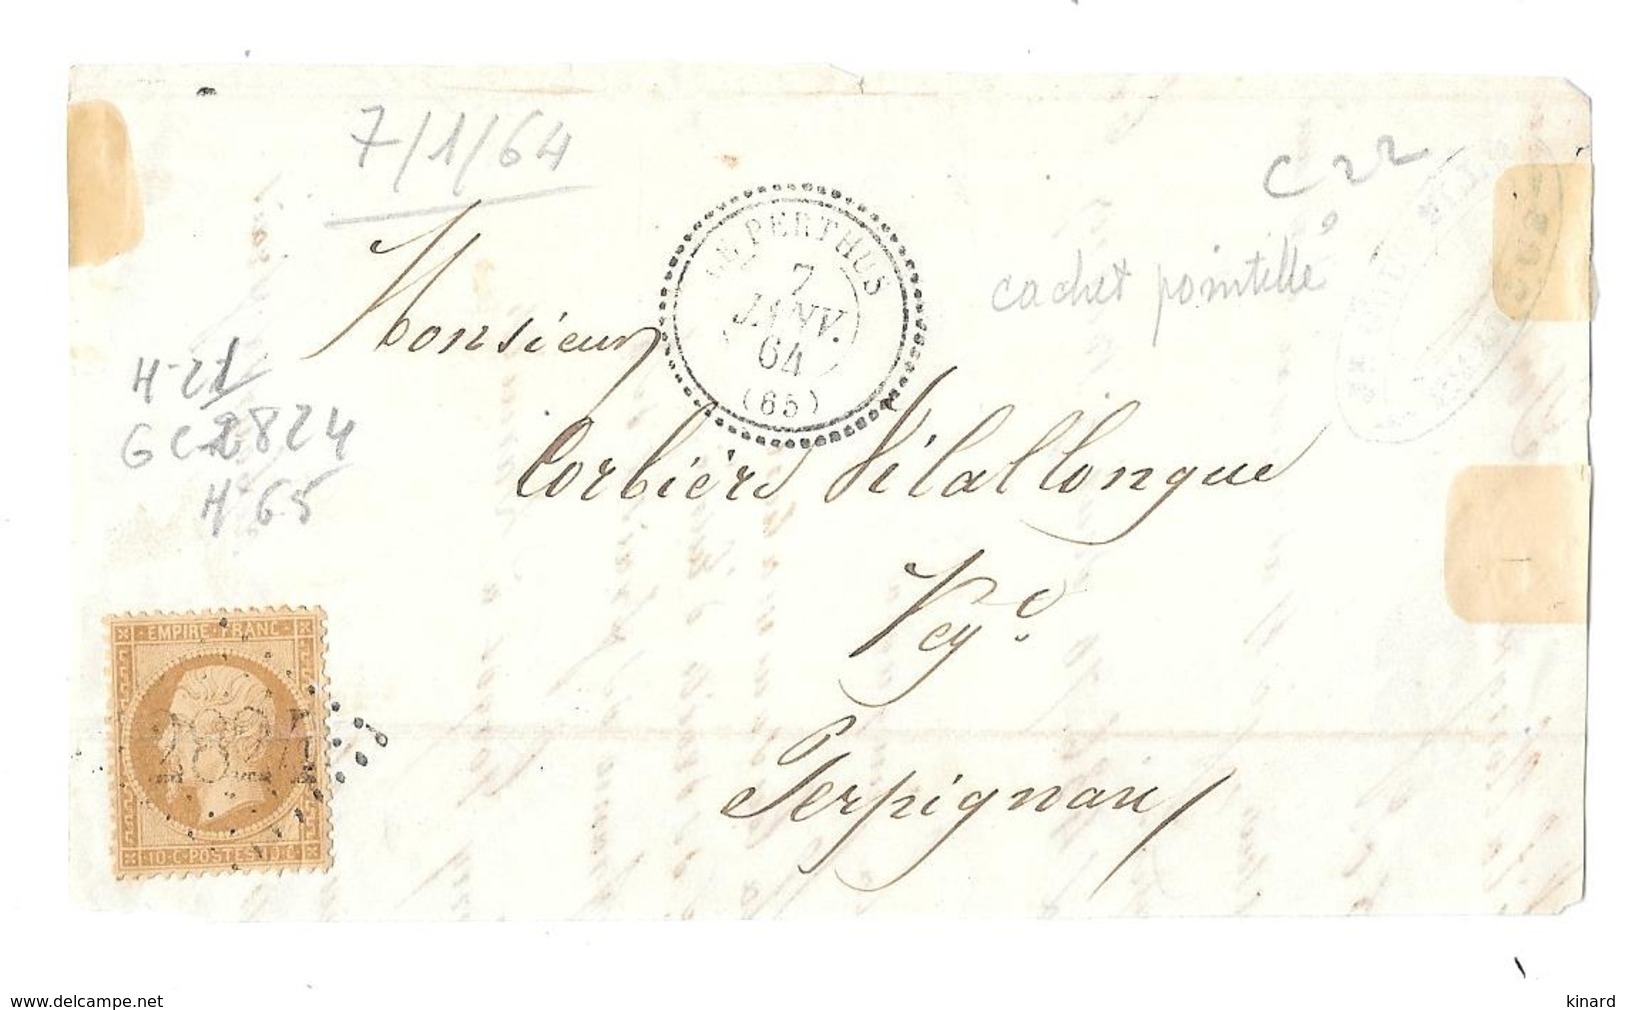 7/1/64
C 22
LE PERTHUS
7
JANV.
64
(65)
cachet pointillé
Monsieur
H-21
GC 2824
H 65
Corbière Vilallongue
Neg.t
Perpignan
EMPIRE FRANC
2824
10·C·POSTES·10·C
www.delcampe.net
kinard